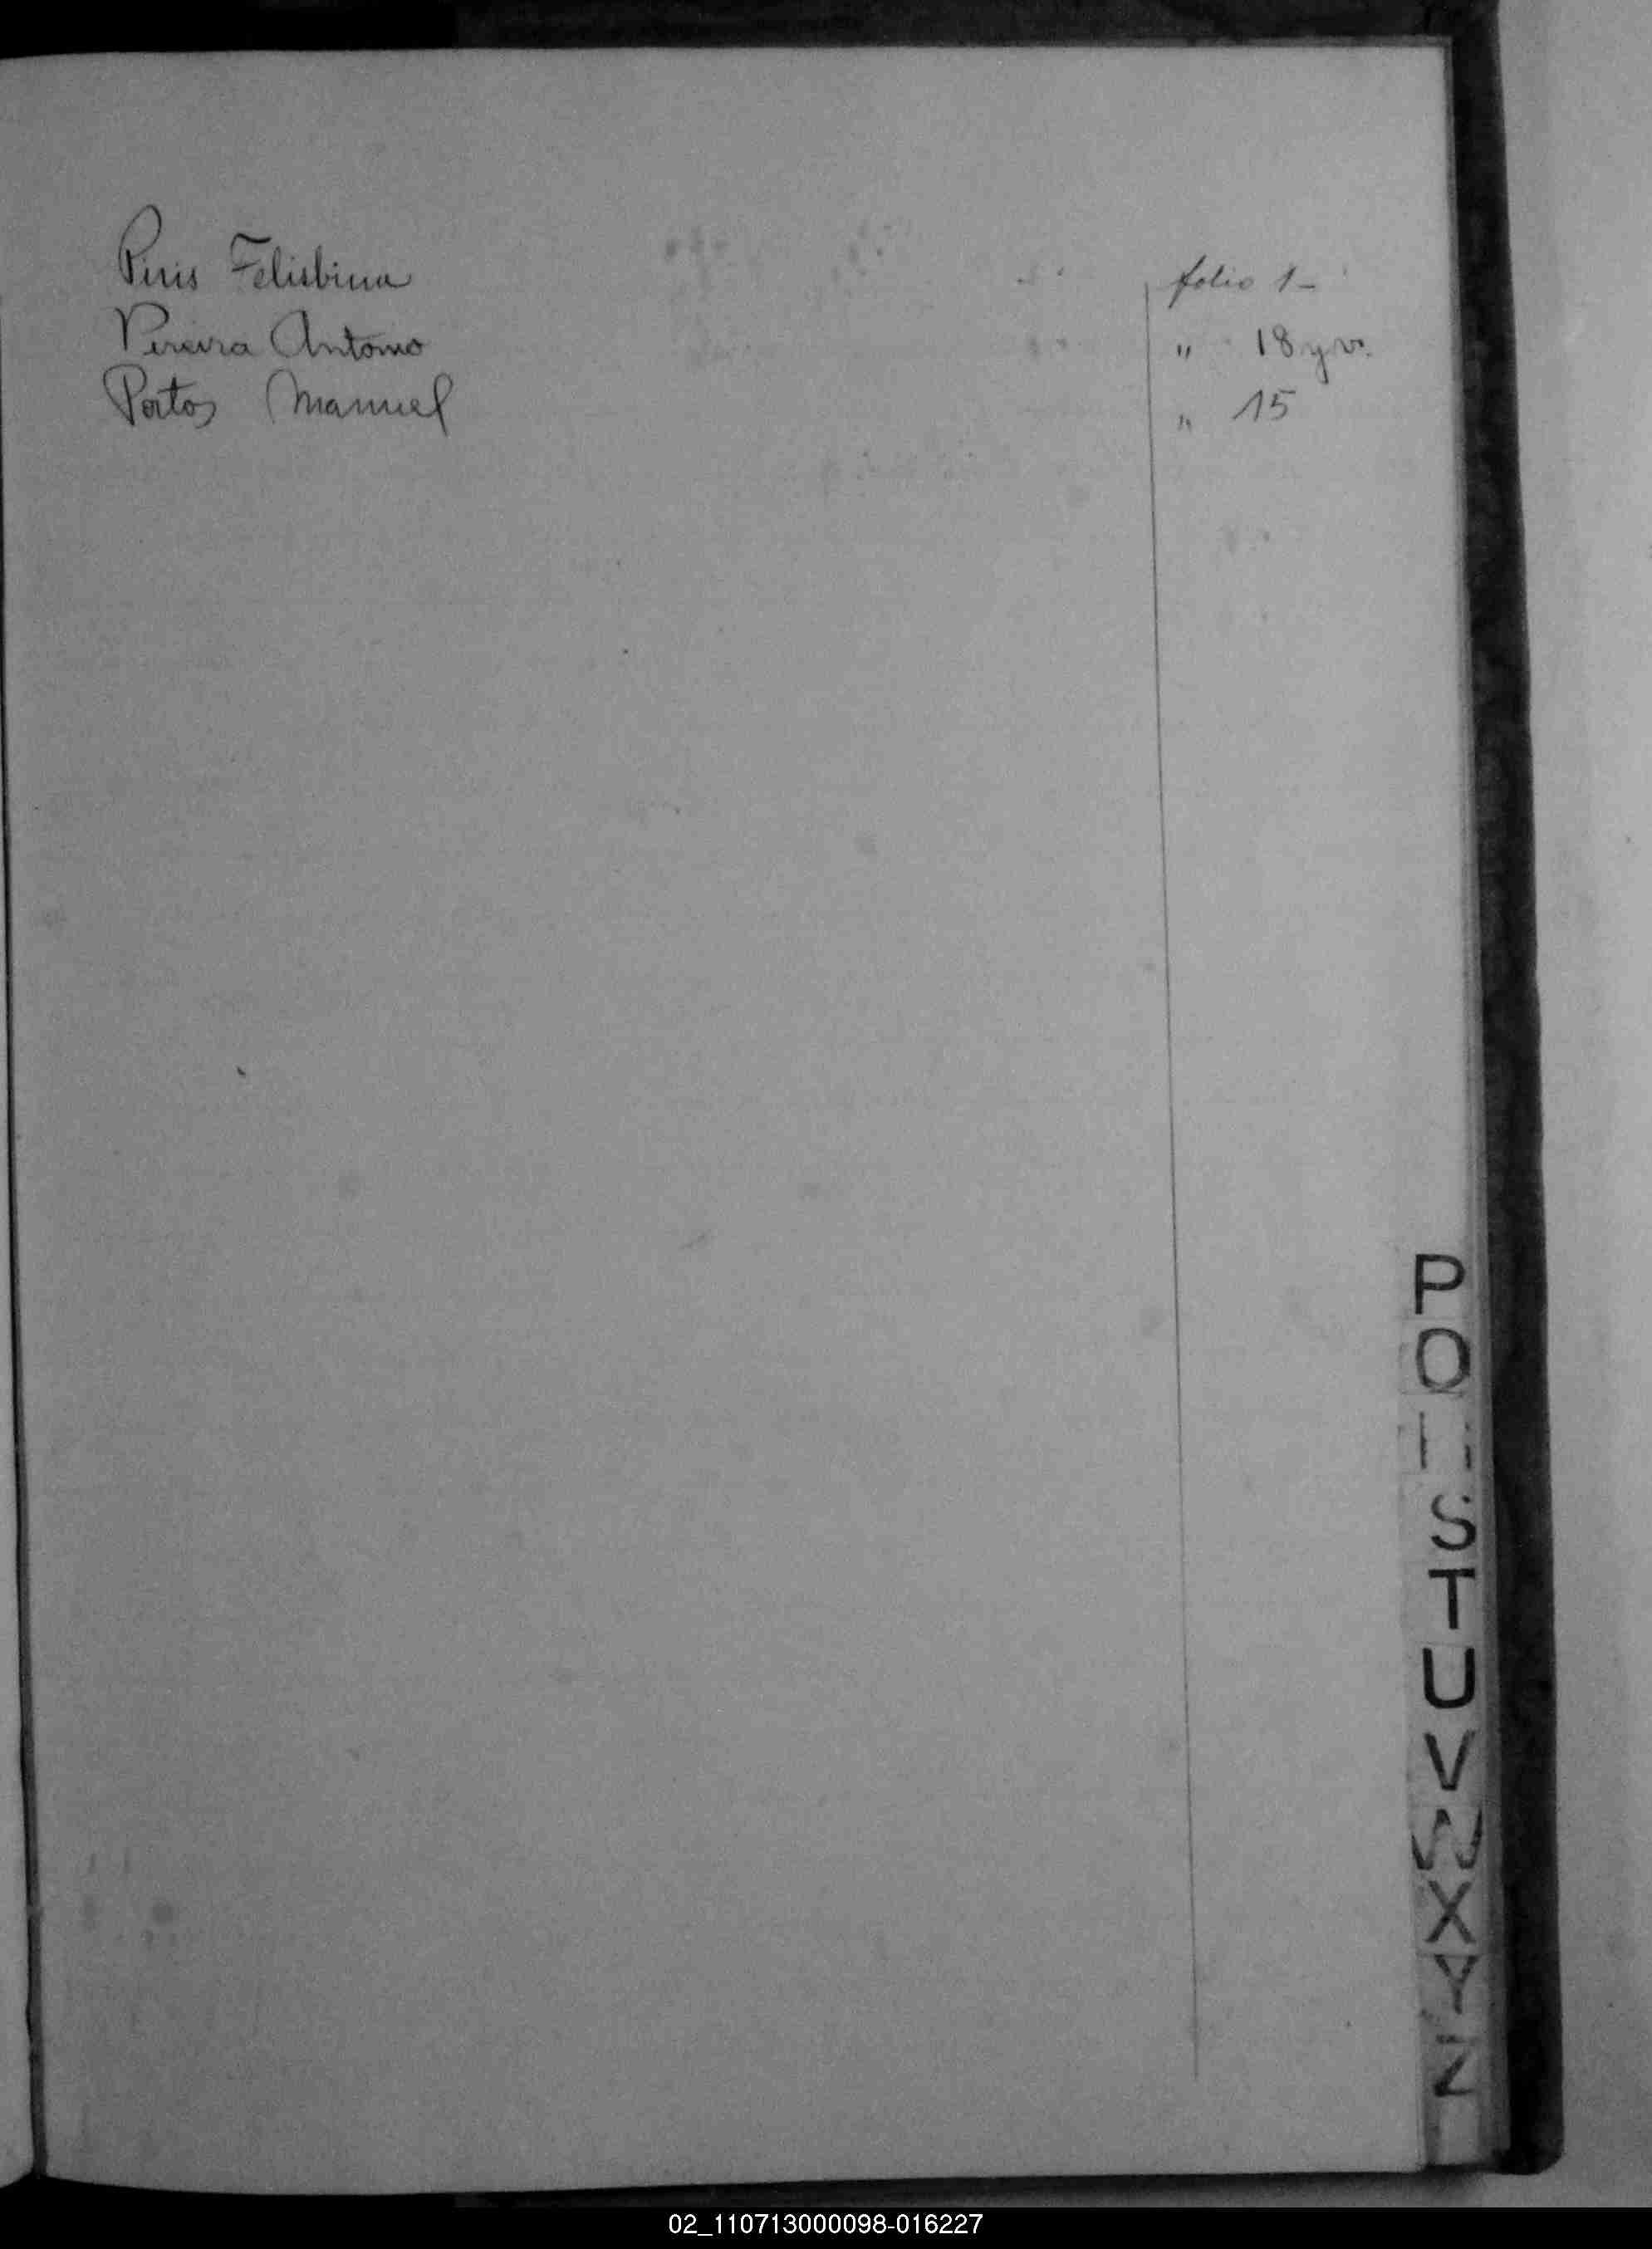 Piris Felisbina folio 1-
Pereira Antonio " 18 y v.
Portos Manuel " 15
P
Q
S
T
U
V
W
X
Y
Z
02_110713000098-016227